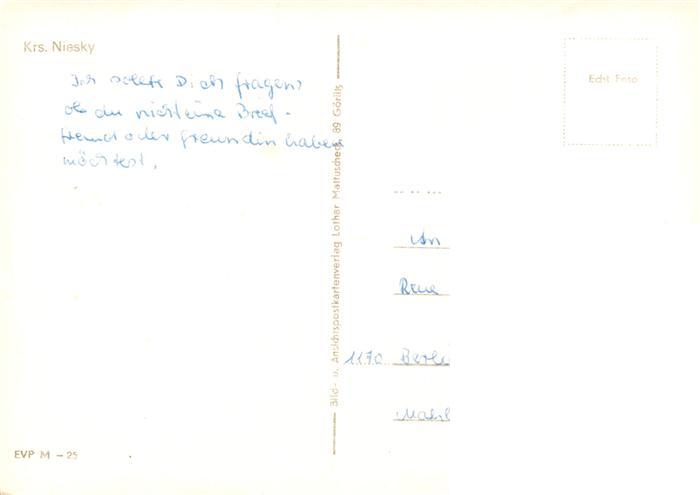 Krs. Niesky
Ich sollte Dich fragen,
ob du nicht eine Brief-
freund oder freundin haben
möchtest.
EVP M - 25
Bild- u. Ansichtspostkartenverlag Lothar Maltuscheck 89 Görlitz
Echt Foto
An
Rene
1170 Berli